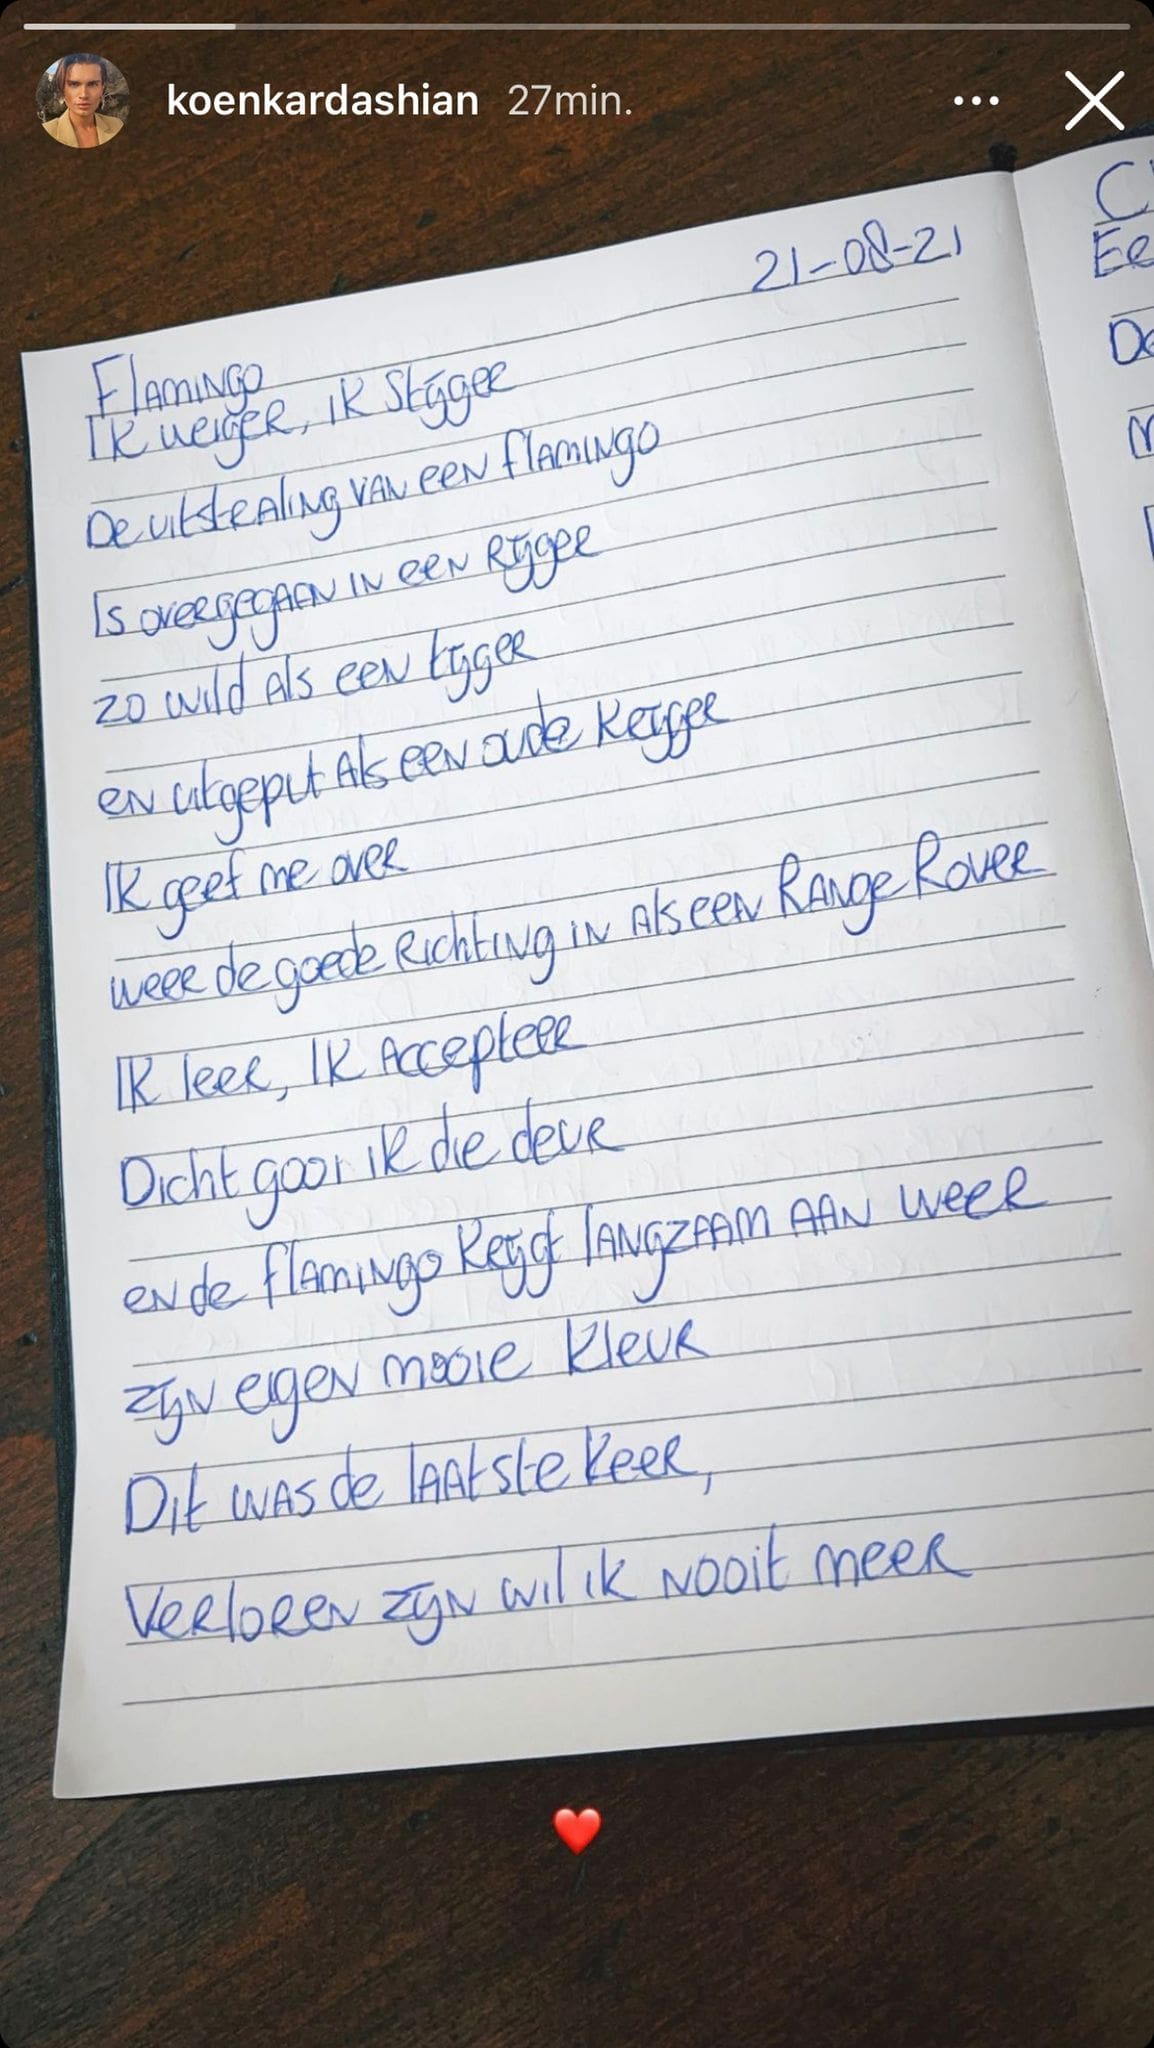 koenkardashian 27min.
21-08-21
Flamingo
Ik weiger, ik stijger
De uitstraling van een flamingo
Is overgegaan in een Rijger
zo wild als een tijger
en uitgeput als een oude krijger
Ik geef me over
weer de goede richting in als een Range Rover
Ik leer, Ik accepteer
Dicht gooi ik die deur
en de flamingo krijgt langzaam aan weer
zijn eigen mooie kleur
Dit was de laatste keer,
Verloren zijn wil ik nooit meer